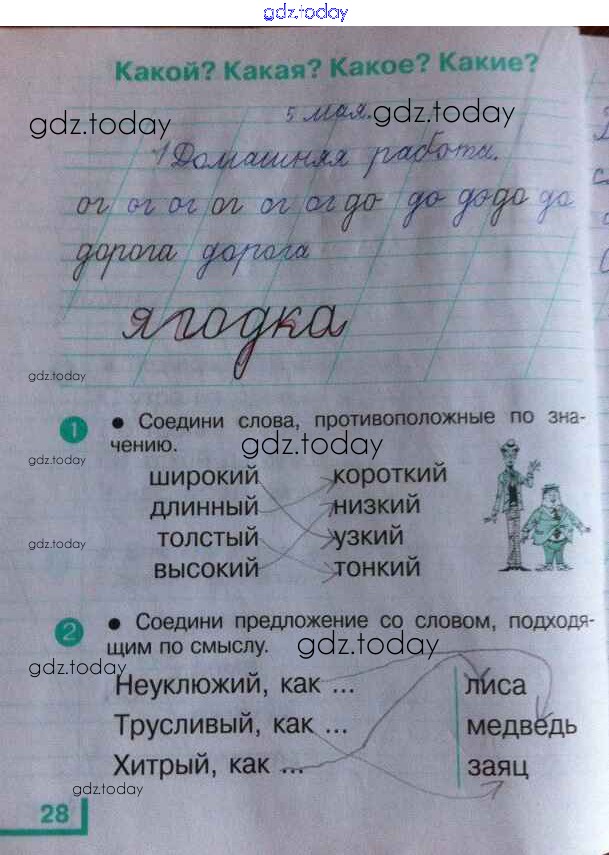 gdz.today
Какой? Какая? Какое? Какие?
gdz.today
gdz.today
5 мая.
Домашняя работа.
ог ог ог ог ог ог до до до до до
дорога дорога
ягодка
gdz.today
1 • Соедини слова, противоположные по зна-
чению.
gdz.today
gdz.today
широкий короткий
длинный низкий
gdz.today
толстый узкий
высокий тонкий
2 • Соедини предложение со словом, подходя-
щим по смыслу.
gdz.today
gdz.today
Неуклюжий, как ... лиса
Трусливый, как ... медведь
Хитрый, как ... заяц
gdz.today
28